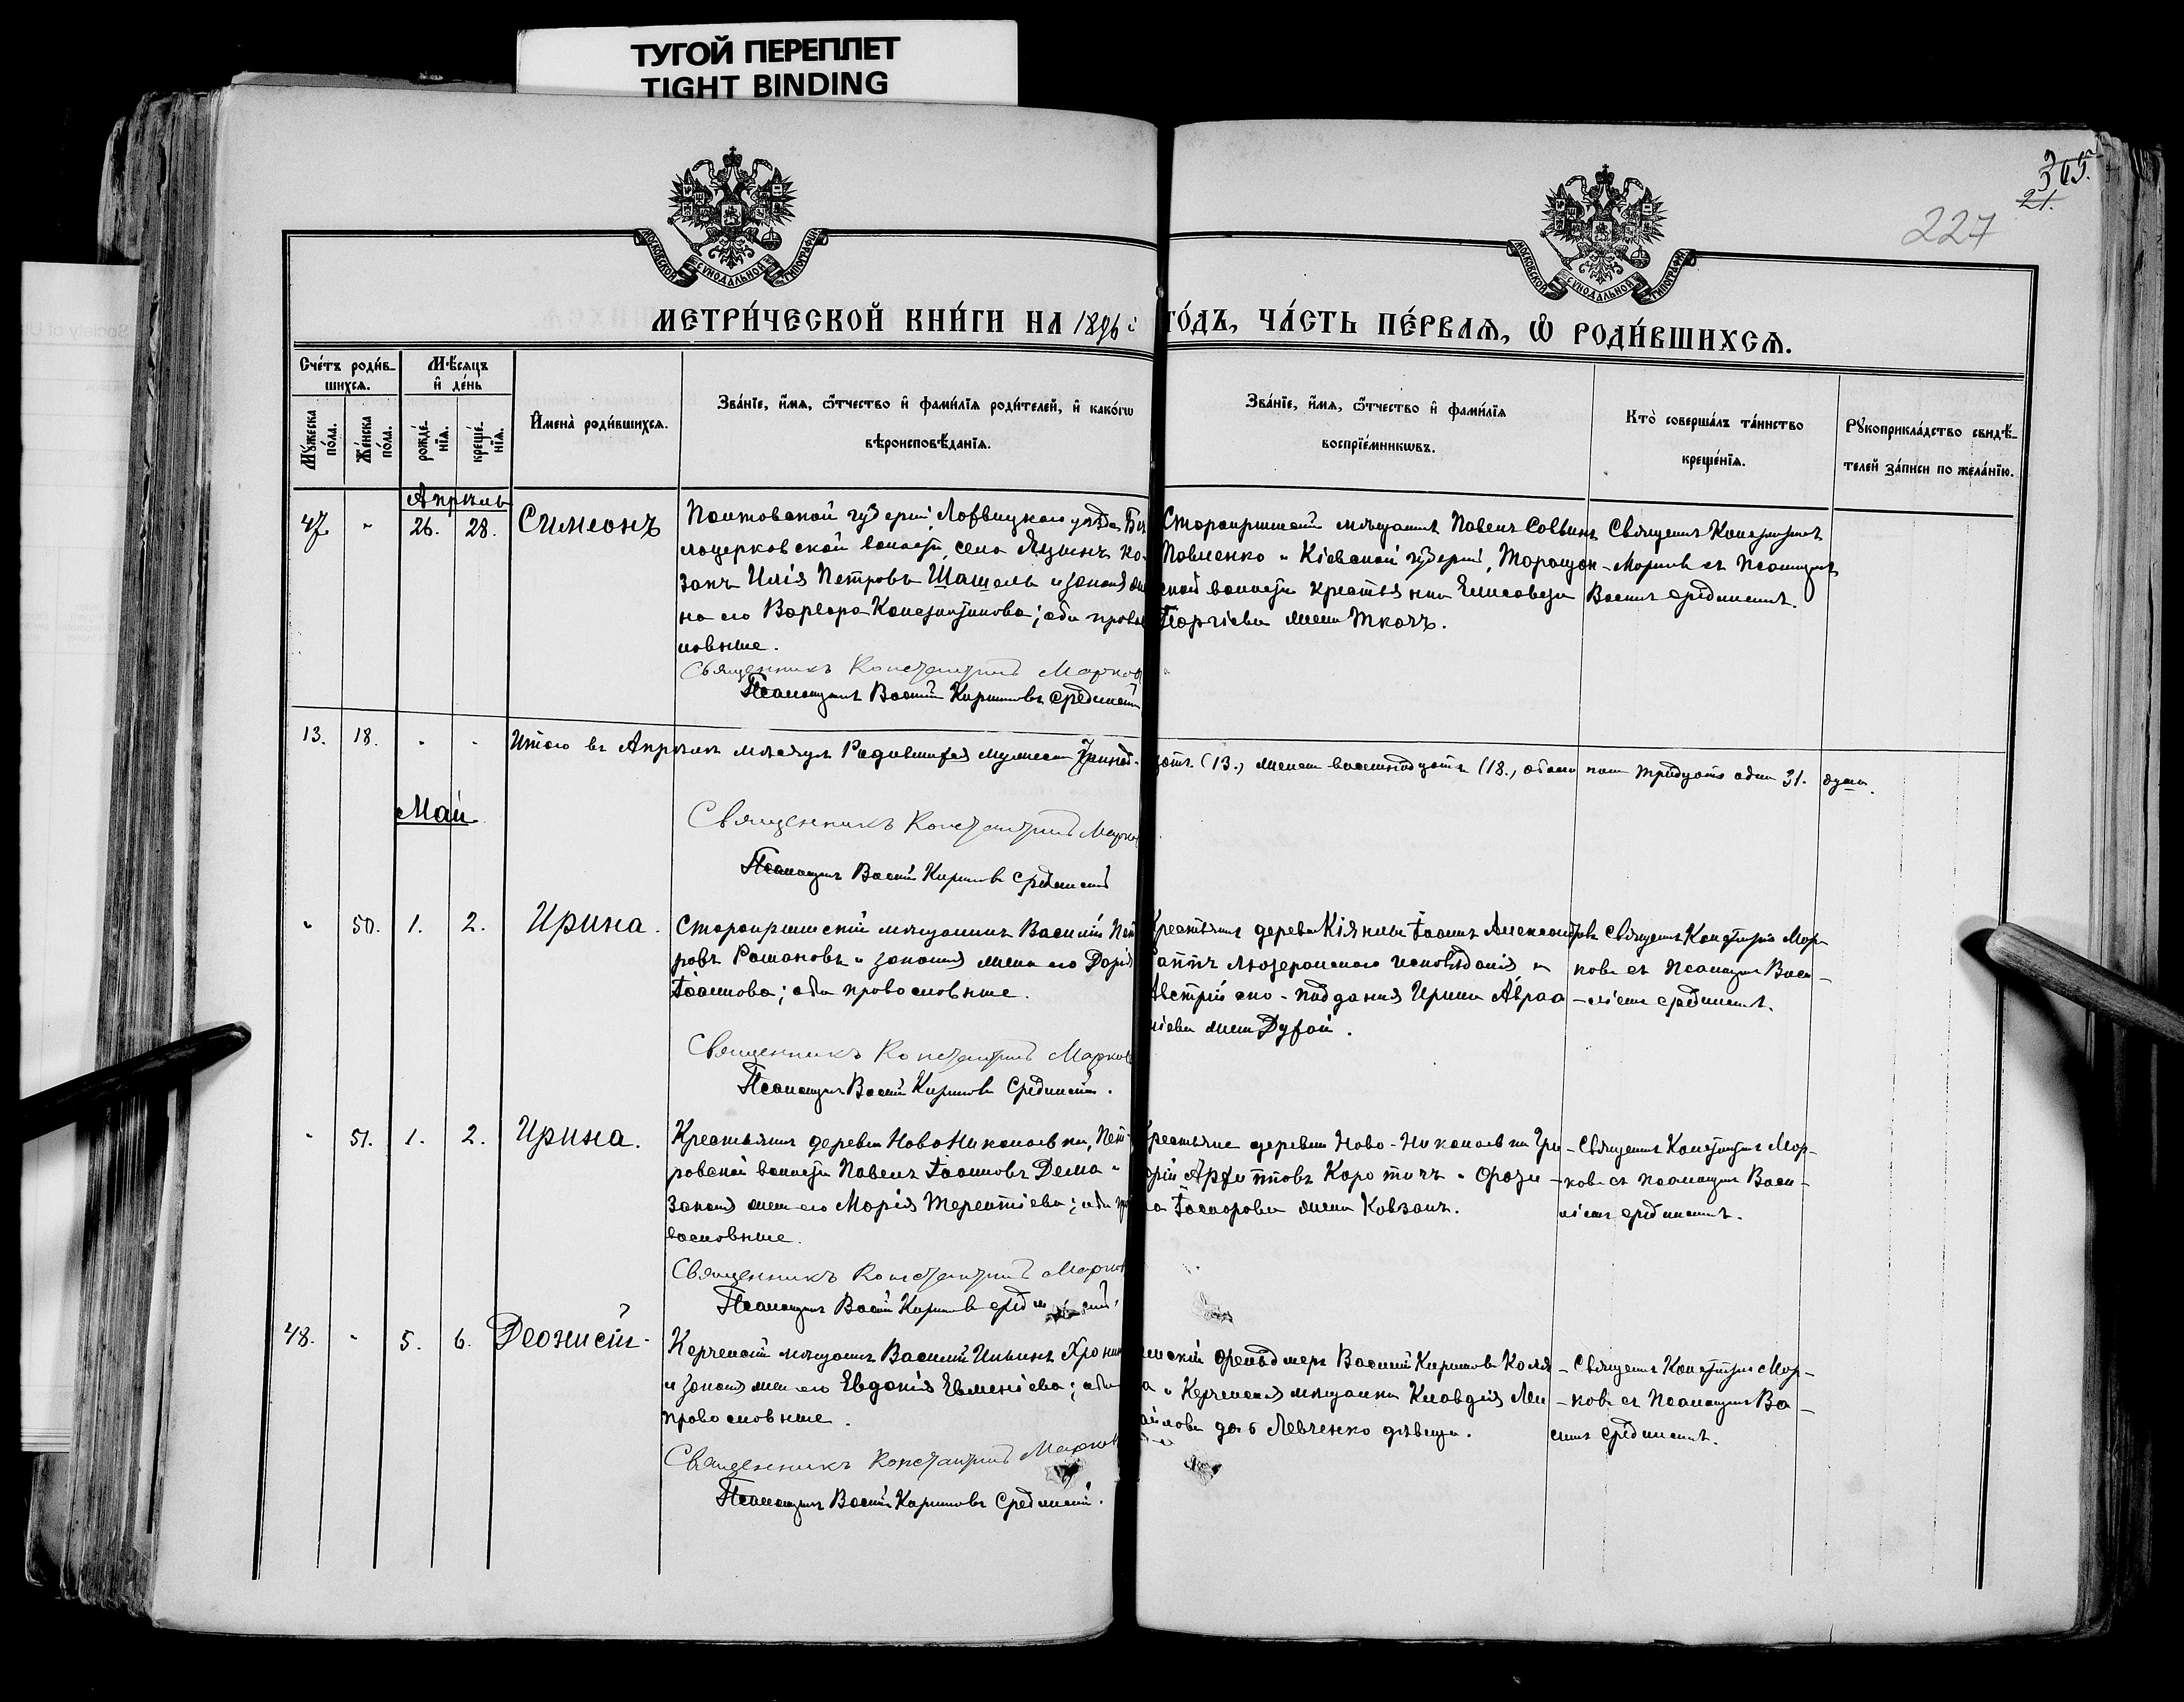 ТУГОЙ ПЕРЕПЛЕТ
TIGHT BINDING
365.
21.
227
МОСКОВСКОЙ СѴНОДАЛЬНОЙ ТИПОГРАФІИ
МОСКОВСКОЙ СѴНОДАЛЬНОЙ ТИПОГРАФІИ
МЕТРИ́ЧЕСКОЙ КНИ́ГИ НА 1896 й ГО́ДЪ, ЧА́СТЬ ПЕ́РВАЯ, Ѡ РОДИ́ВШИХСЯ.
Сче́тъ роди́вшихся.
Мужеска по́ла.
Же́нска по́ла.
Мѣ́сяцъ и де́нь
рожде́нїя.
креще́нїя.
Имена̀ роди́вшихся.
Зва́нїе, и́мя, ѻ́тчество и фами́лїя роди́телей, и како́гѡ
вѣроисповѣ́данїя.
Зва́нїе, и́мя, ѻ́тчество и фами́лїя
воспрїе́мникѡвъ.
Кто̀ соверша́лъ та́инство
креще́нїя.
Рукоприкла́дство свидѣ́-
телей за́писи по жела́нїю.
Апрѣль
47. " 26. 28. Симеонъ
Полтовской губерніи, Лохвицкаго уѣзда, Бѣ
лоцерковской волости, села Яцынъ ко-
закъ Илія Петровъ Шашель и законная же
на его Варвара Константинова; оба правос
лавные.
Священникъ Константинъ Марковъ
Псаломщикъ Василій Кирилловъ Срединскій
Старокрымскій мѣщанинъ Павелъ Саввинъ
Павленко и Кіевской губерніи, Таращан-
ской волости крестьянки Елисавета
Георгіева жена Ткачъ.
Священникъ Константинъ
Марковъ съ Псаломщик
Васил Срединскимъ.
13. 18. " " Итого въ Апрѣлѣ мѣсяцѣ Родившихся мужеска тринад-
цать (13.) женска восемнадцать (18.), обоего пола тридцать одна 31. душа.
Май
Священникъ Константинъ Марков
Псаломщикъ Василій Кирилловъ Срединскій
" 50. 1. 2. Ирина.
Старокрымскій мѣщанинъ Василій Пет
ровъ Романовъ и законная жена его Дарія
Іоаннова; оба православные.
Священникъ Константинъ Марковъ
Псаломщикъ Василій Кирилловъ Срединскій.
Крестьянинъ деревни Кіянлы Іоаннъ Александровъ
лютеранскаго исповѣданія, и
Австрійско-подданная Ирина Авраа
міева жена Духай.
Священникъ Константинъ Мар-
ковъ съ Псаломщик Васи-
ліемъ Срединскимъ.
" 51. 1. 2. Ирина.
Крестьянинъ деревни Ново Николаевки, Пет-
ровской волости Павелъ Іоанновъ Дема и
Законная жена его Марія Терентіева; оба пра
вославные.
Священникъ Константинъ Марковъ
Псаломщикъ Василій Кирилловъ Срединскій.
Крестьяне деревни Ново-Николаевки Гри-
горій Коротичъ и
жена Ковзанъ.
Священникъ Константинъ Мар-
ковъ съ Псаломщик Васи-
ліемъ Срединскимъ.
48. " 5. 6. Феоктистъ.
Керченскій мѣщанинъ Василій Ильинъ
и законная жена его Евдокія Евменіева; оба
православные.
Священникъ Константинъ Марковъ
Псаломщикъ Василій Кирилловъ Срединскій.
фельдшеръ Василій Кирилловъ
и Керченская мѣщанка Клавдія Ми
хайлова дочь Левченко дѣвица.
Священникъ Константинъ Мар-
ковъ съ Псаломщик Ва-
силіемъ Срединскимъ.